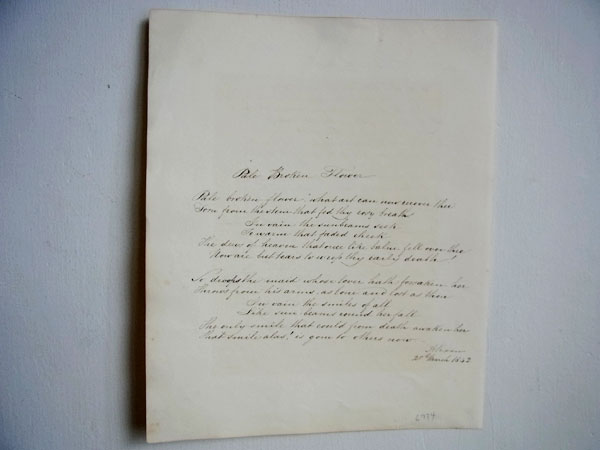 Pale Broken Flower
Pale broken flower! what art can now recover thee
Torn from the stem that fed thy rosy breath
In vain the sunbeams seek
To warm that faded cheek
The dews of heaven that once like balm fell over thee
Now are but tears to weep thy early death
So droops the maid whose lover hath forsaken her
Thrown from his arms, as lone and lost as thou
In vain the smiles of all
Like sun beams round her fall
The only smile that could from death awaken her
That smile alas! is gone to others now.
March 1842